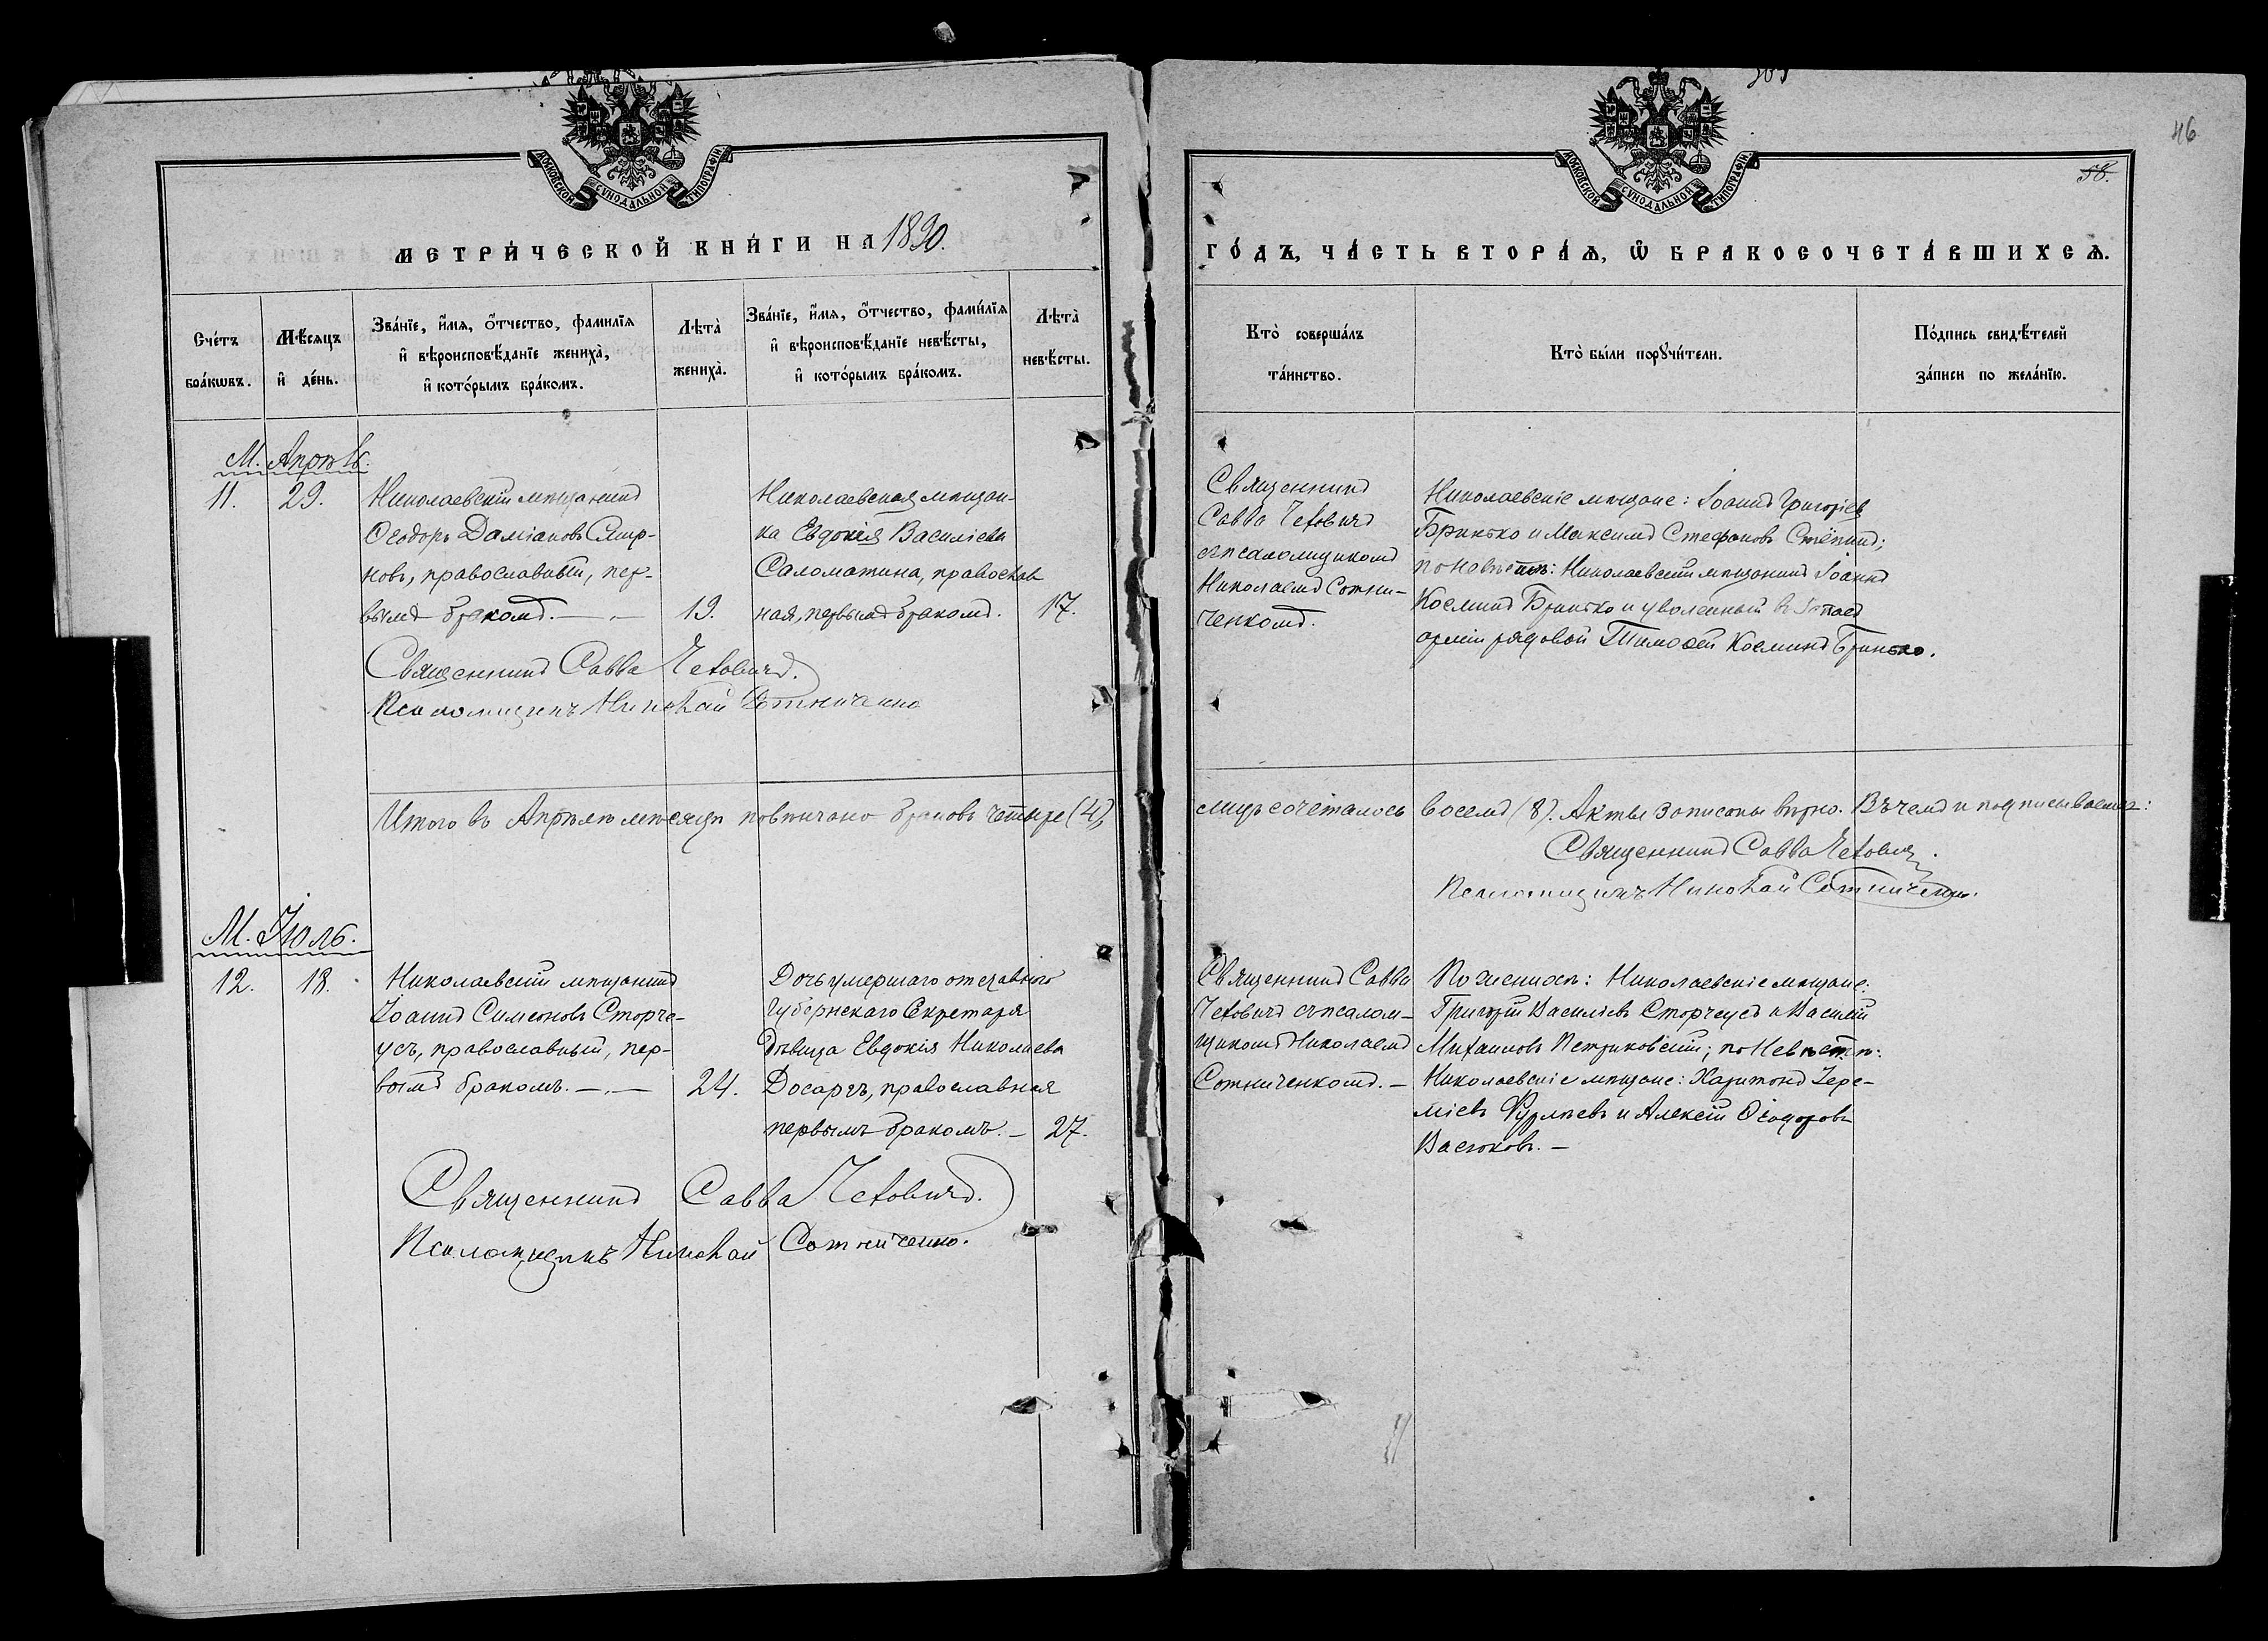 МОСКОВСКОЙ СѴНОДАЛЬНОЙ ТИПОГРАФІИ
МЕТРИ́ЧЕСКОЙ КНИ́ГИ НА 1890.
Сче́тъ бра́кѡвъ.
Мѣ́сяцъ и҆ де́нь.
Зва́нїе, и҆́мѧ, ѻ҆́тчество, фами́лїѧ
и҆ вѣроисповѣ́данїе жениха̀,
и҆ кото́рымъ бра́комъ.
Лѣта̀
жениха̀.
Зва́нїе, и҆́мѧ, ѻ҆́тчество, фами́лїѧ
и҆ вѣроисповѣ́данїе невѣ́сты,
и҆ кото́рымъ бра́комъ.
Лѣта̀
невѣ́сты.
М. Апрѣль.
11.
29.
Николаевскій мѣщанинъ
Ѳеодоръ Даміановъ Смир-
новъ, православный, пер-
вымъ бракомъ. —
19.
Николаевская мѣщан-
ка Евдокія Василіева
Саломатина, православ
ная, первымъ бракомъ.
17.
Священникъ Савва Чеховичъ.
Псаломщикъ Николай Сотниченко
Итого въ Апрѣлѣ мѣсяцѣ повѣнчано браковъ четыре (4),
М. Іюль.
12.
18.
Николаевскій мѣщанинъ
Іоаннъ Симеоновъ Сторче-
усъ, православный, пер-
вымъ бракомъ. —
24.
Дочь умершаго отставнаго
Губернскаго Секретаря
дѣвица Евдокія Николаева
Досаргъ, православная
первымъ бракомъ. —
27.
Священникъ Савва Чеховичъ.
Псаломщикъ Николай Сотниченко.
46
58.
МОСКОВСКОЙ СѴНОДАЛЬНОЙ ТИПОГРАФІИ
ГО́ДЪ, ЧА́СТЬ ВТОРА́Ѧ, Ѽ БРАКОСОЧЕТА́ВШИХСѦ.
Кто̀ соверша́лъ
та́инство.
Кто̀ бы́ли порꙋчи́тели.
По́дпись свидѣ́телей
за́писи по жела́нїю.
Священникъ
Савва Чеховичъ
съ псаломщикомъ
Николаемъ Сотни-
ченкомъ.
Николаевскіе мѣщане: Іоаннъ Григорьевъ
Бринько и Максимъ Стефановъ Степинъ;
по невѣстѣ: Николаевскій мѣщанинъ Іоаннъ
Косминъ Бринько и уволенный въ запасъ
арміи рядовой Тимоѳей Косминъ Бринько.
лицъ сочеталось восемь (8). Акты записаны вѣрно. Въ чемъ и подписываемся:
Священникъ Савва Чеховичъ.
Псаломщикъ Николай Сотниченко.
Священникъ Савва
Чеховичъ съ псалом-
щикомъ Николаемъ
Сотниченкомъ. —
По женихѣ: Николаевскіе мѣщане:
Григорій Василіевъ Сторчеусъ и Василій
Михаиловъ Петриковскій; по невѣстѣ:
Николаевскіе мѣщане: Харитонъ Іере-
міевъ Фурлѣевъ и Алексій Ѳеодоровъ
Васюковъ. —